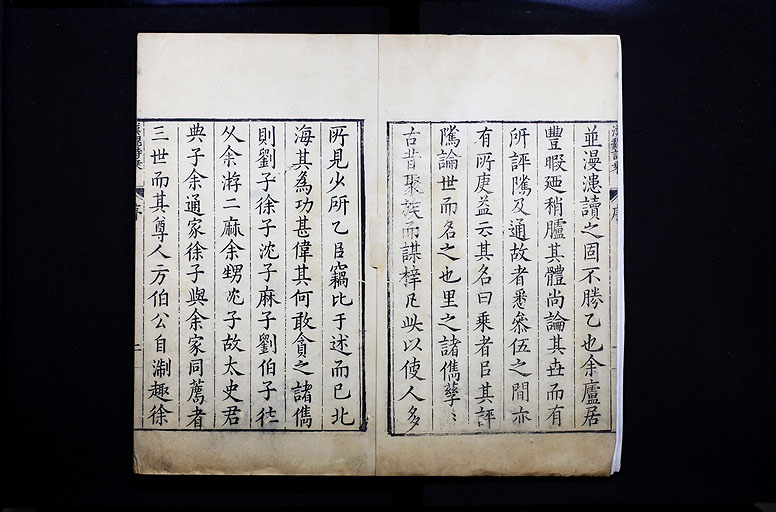 並漫漶讀之固不勝乙也余廬居
豐暇廼稍臚其體尚論其世而有
所評隲及通故者悉叅伍之間亦
有所庚益云其名曰乘者㠯其評
隲論世而名之也里之諸儁孳〻
古昔聚族而謀梓凡此以使人多
所見少所乙㠯竊比于述而已北
海其為功甚偉其何敢貪之諸儁
則劉子徐子沈子麻子劉伯子徃
从余游二麻余甥沈子故太史君
典子余通家徐子與余家同薦者
三世而其尊人方伯公自淛趣徐
序
序
二